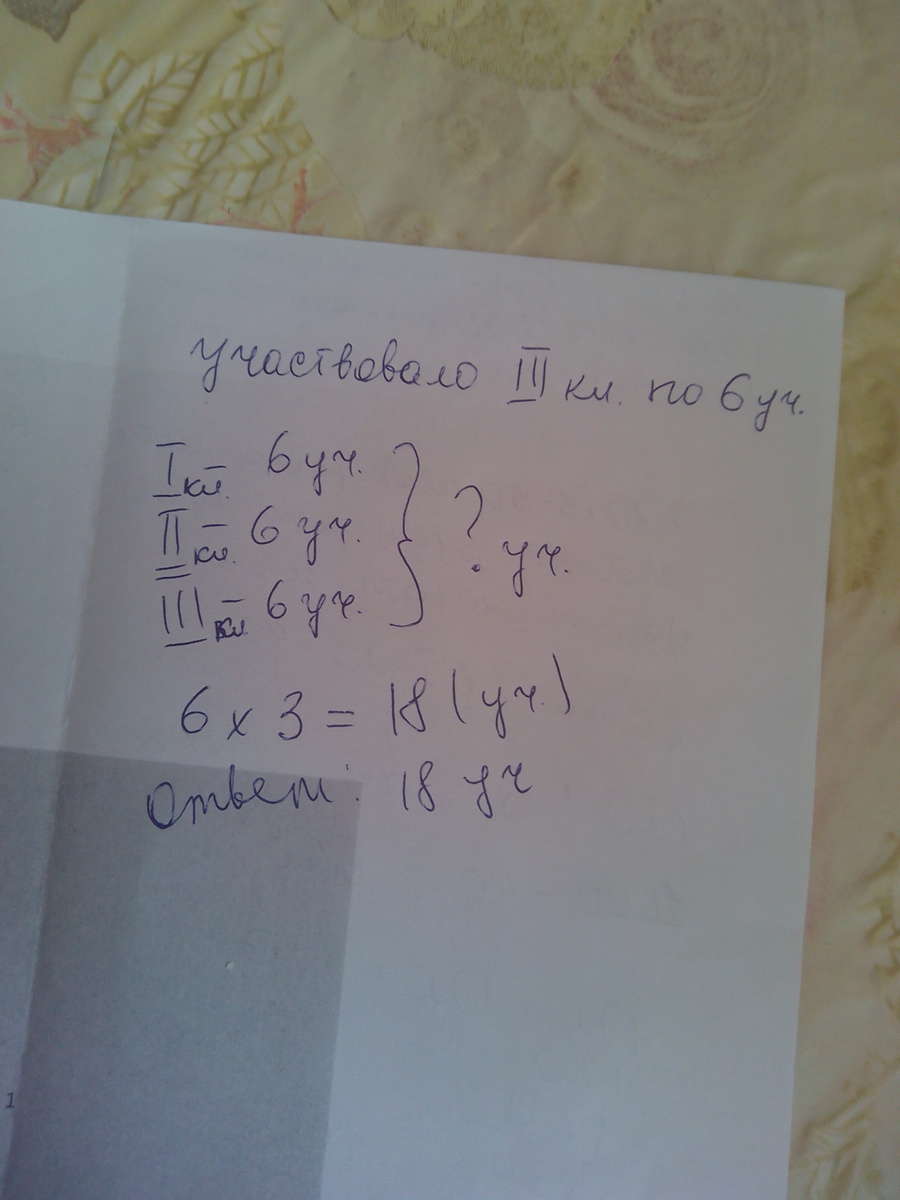 участвовало III кл. по 6 уч.
I кл. - 6 уч.
II кл. - 6 уч.
III кл. - 6 уч.
? уч.
6 х 3 = 18 (уч.)
Ответ: 18 уч
1